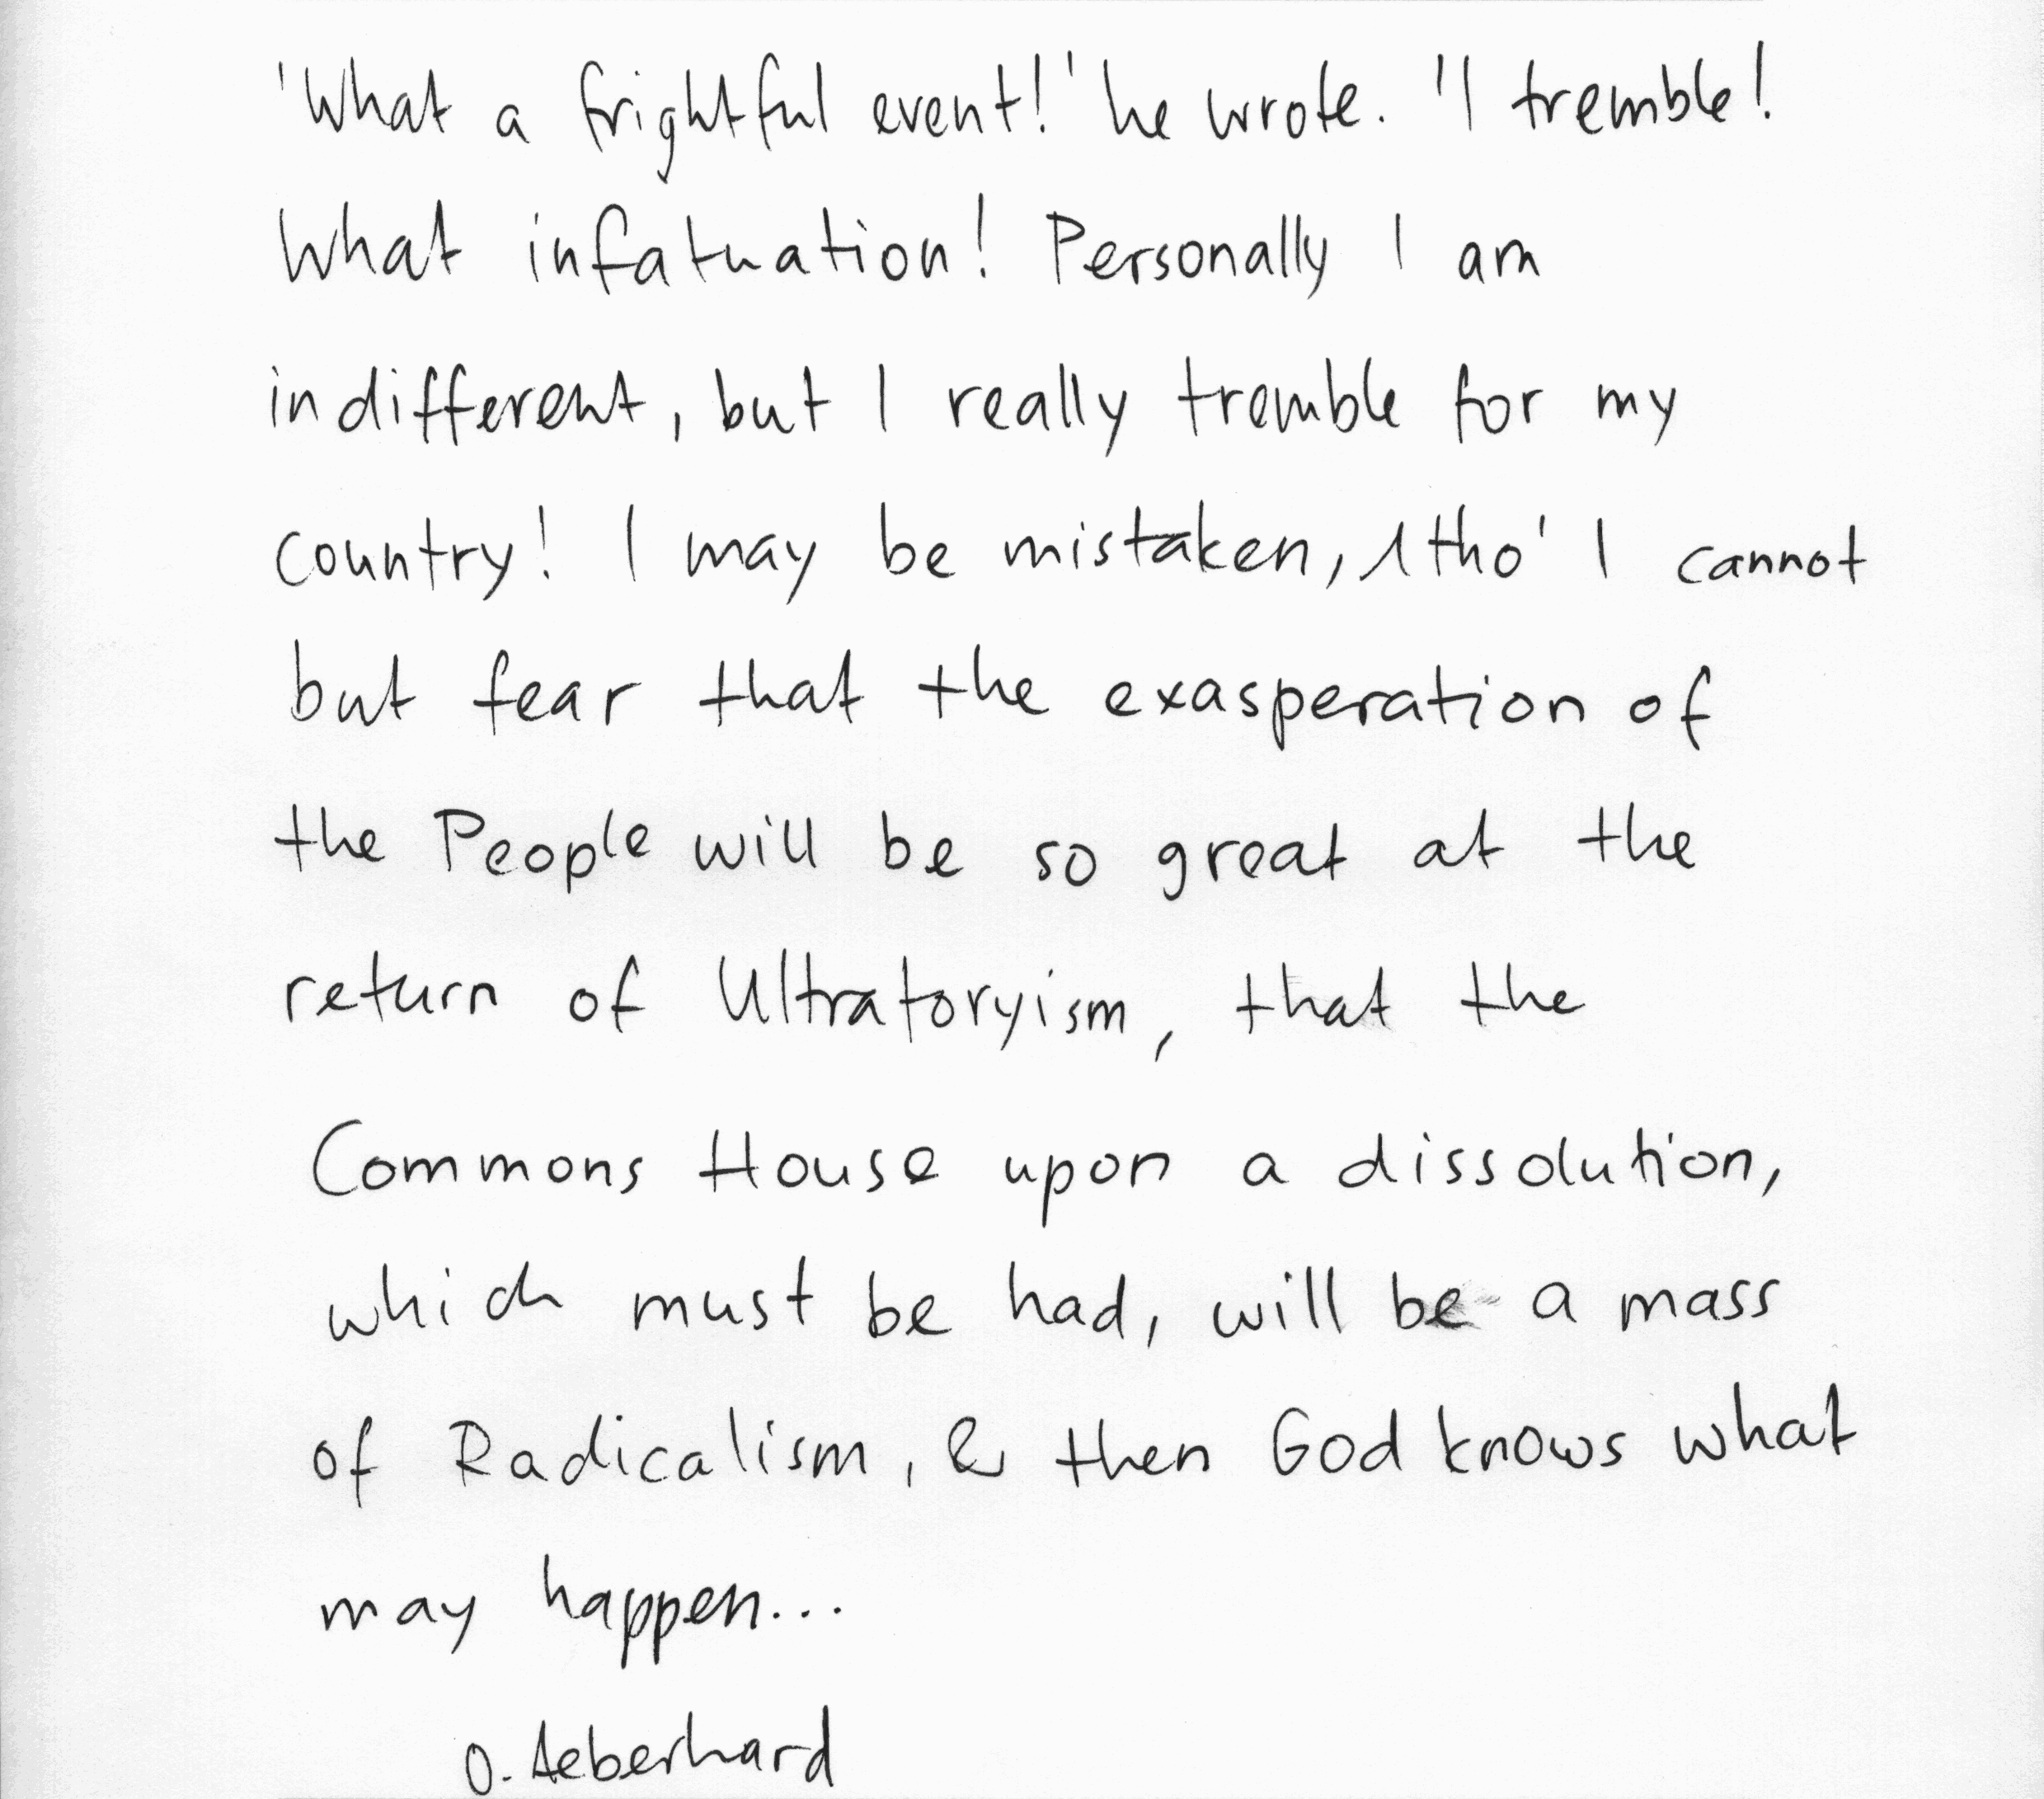 'What a frightful event!' he wrote. 'I tremble!
What infatuation! Personally I am
indifferent, but I really tremble for my
country! I may be mistaken, 1tho' I cannot
but fear that the exasperation of
the People will be so great at the
return of Ultratoryism, that the
Commons House upon a dissolution,
which must be had, will be a mass
of Radicalism, & then God knows what
may happen...
O. Aeberhard